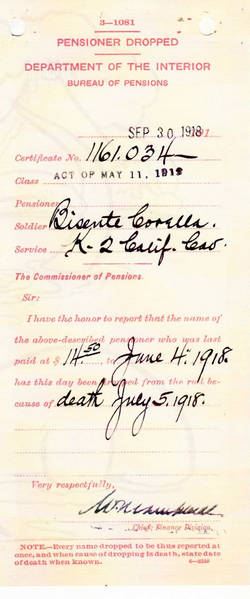 3—1081
PENSIONER DROPPED
DEPARTMENT OF THE INTERIOR
BUREAU OF PENSIONS
SEP 30 1918 191
Certificate No. 1161.034
Class ACT OF MAY 11, 1912
Pensioner
Soldier Bisente Corella.
Service K-2 Calif. Cav.
The Commissioner of Pensions.
Sir:
I have the honor to report that the name of
the above-described pensioner who was last
paid at $ 14.50, to June 4. 1918.
has this day been dropped from the roll be-
cause of death July 5. 1918.
Very respectfully,
Chief, Finance Division.
NOTE.—Every name dropped to be thus reported at
once, and when cause of dropping is death, state date
of death when known.